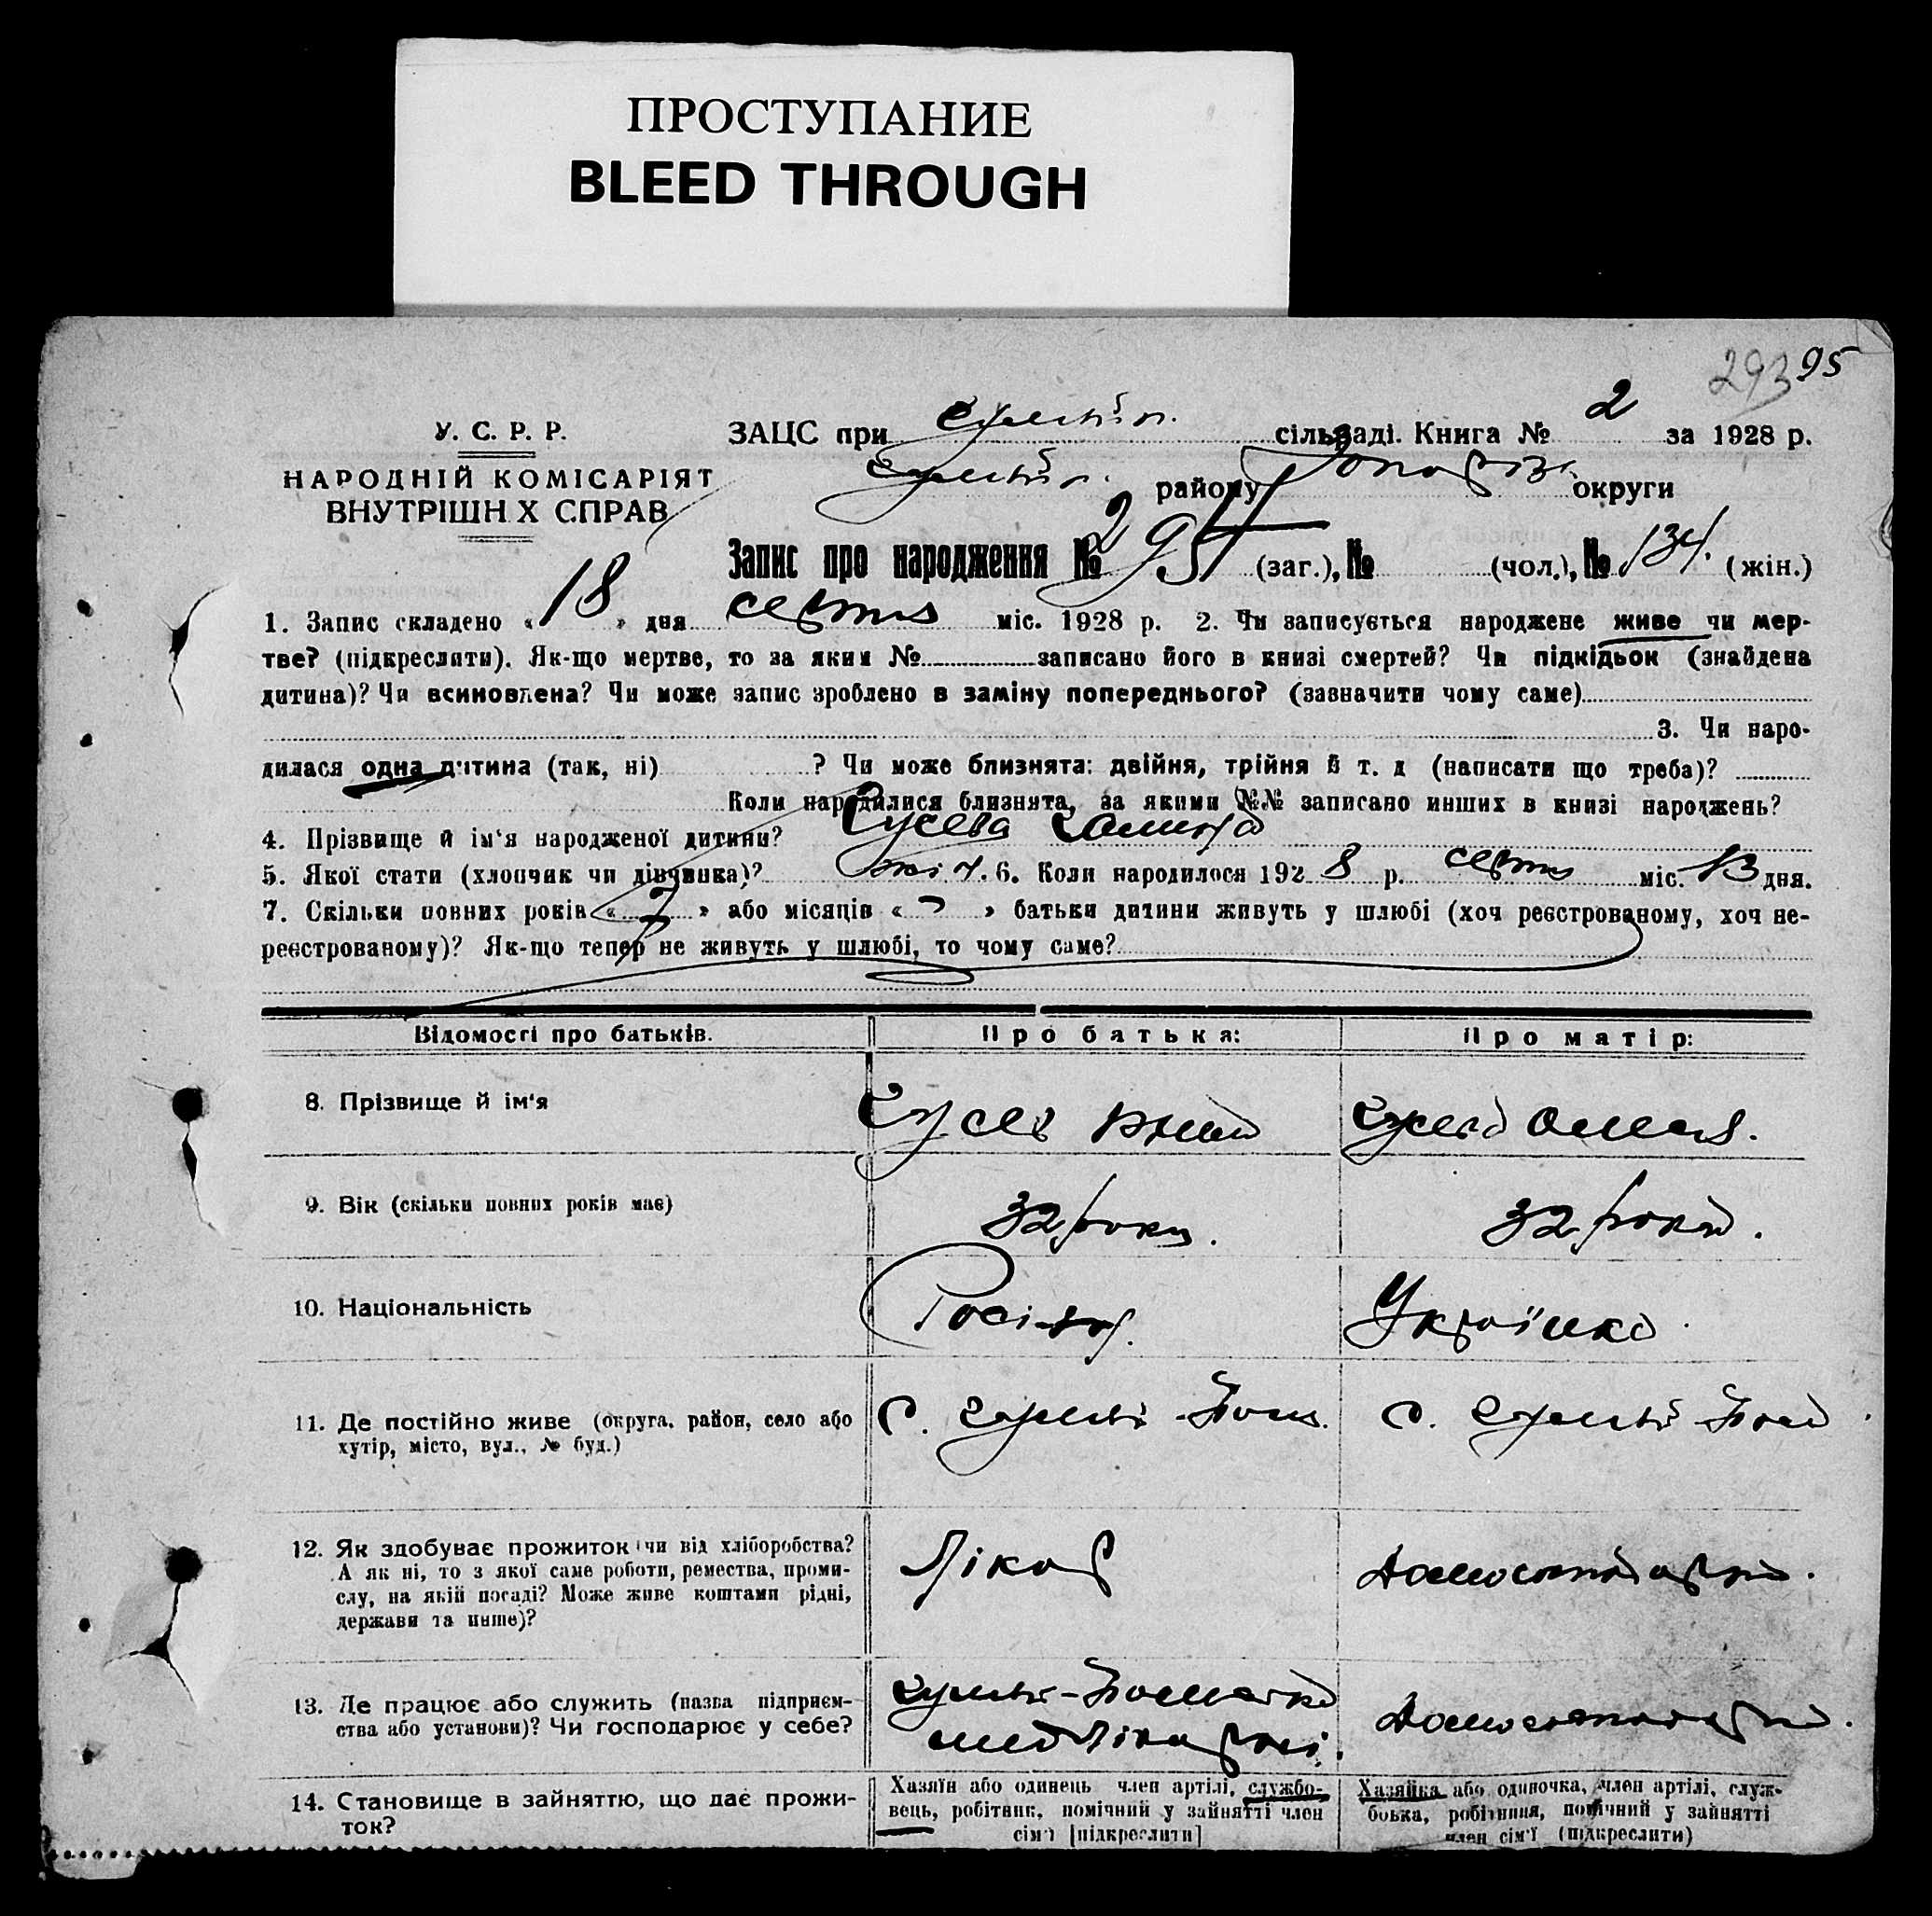 ПРОСТУПАНИЕ
BLEED THROUGH
293 95
У. С. Р. Р.
НАРОДНІЙ КОМІСАРІЯТ
ВНУТРІШН Х СПРАВ
ЗАЦС при сільраді. Книга № 2 за 1928 р.
району округи
Запис про народження № 295 (заг.), № (чол.), № 134. (жін.)
1. Запис складено « 18 » дня серпня міс. 1928 р. 2. Чи записується народжене живе чи мер-
тве? (підкреслити). Як-що мертве, то за яким № записано його в книзі смертей? Чи підкідьок (знайдена
дитина)? Чи всиновлена? Чи може запис зроблено в заміну попереднього? (зазначити чому саме)
3. Чи наро-
дилася одна дитина (так, ні) ? Чи може близнята: двійня, трійня й т. д (написати що треба)?
Коли народилися близнята, за якими №№ записано инших в книзі народжень?
4. Прізвище й ім'я народженої дитини? Гусева Галина
5. Якої стати (хлопчик чи дівчинка)? жін. 6. Коли народилося 1928 р. серпня міс. 13 дня.
7. Скільки повних років « 7 » або місяців « » батьки дитини живуть у шлюбі (хоч реєстрованому, хоч не-
реєстрованому)? Як-що тепер не живуть у шлюбі, то чому саме?
Відомості про батьків.
Про батька:
Про матір:
8. Прізвище й ім'я
Гусев
Гусева
9. Вік (скільки повних років має)
32 роки.
32 роки.
10. Національність
Українка
11. Де постійно живе (округа, район, село або
хутір, місто, вул., № буд.)
с. Гуляй-Поле
с. Гуляй-Поле
12. Як здобуває прожиток (чи від хліборобства?
А як ні, то з якої саме роботи, ремества, проми-
слу, на якій посаді? Може живе коштами рідні,
держави та инше)?
Лікар
Домогосподарка.
13. Де працює або служить (назва підприєм-
ства або установи)? Чи господарює у себе?
Гуляй-Польська
Домогосподарка.
14. Становище в зайняттю, що дає прожи-
ток?
Хазяїн або одинець член артілі, службо-
вець, робітник, помічний у зайнятті член
сім'ї [підкреслити]
Хазяйка або одиночка, член артілі, служ-
бовка, робітниця, помічний у зайнятті
член сім'ї (підкреслити)